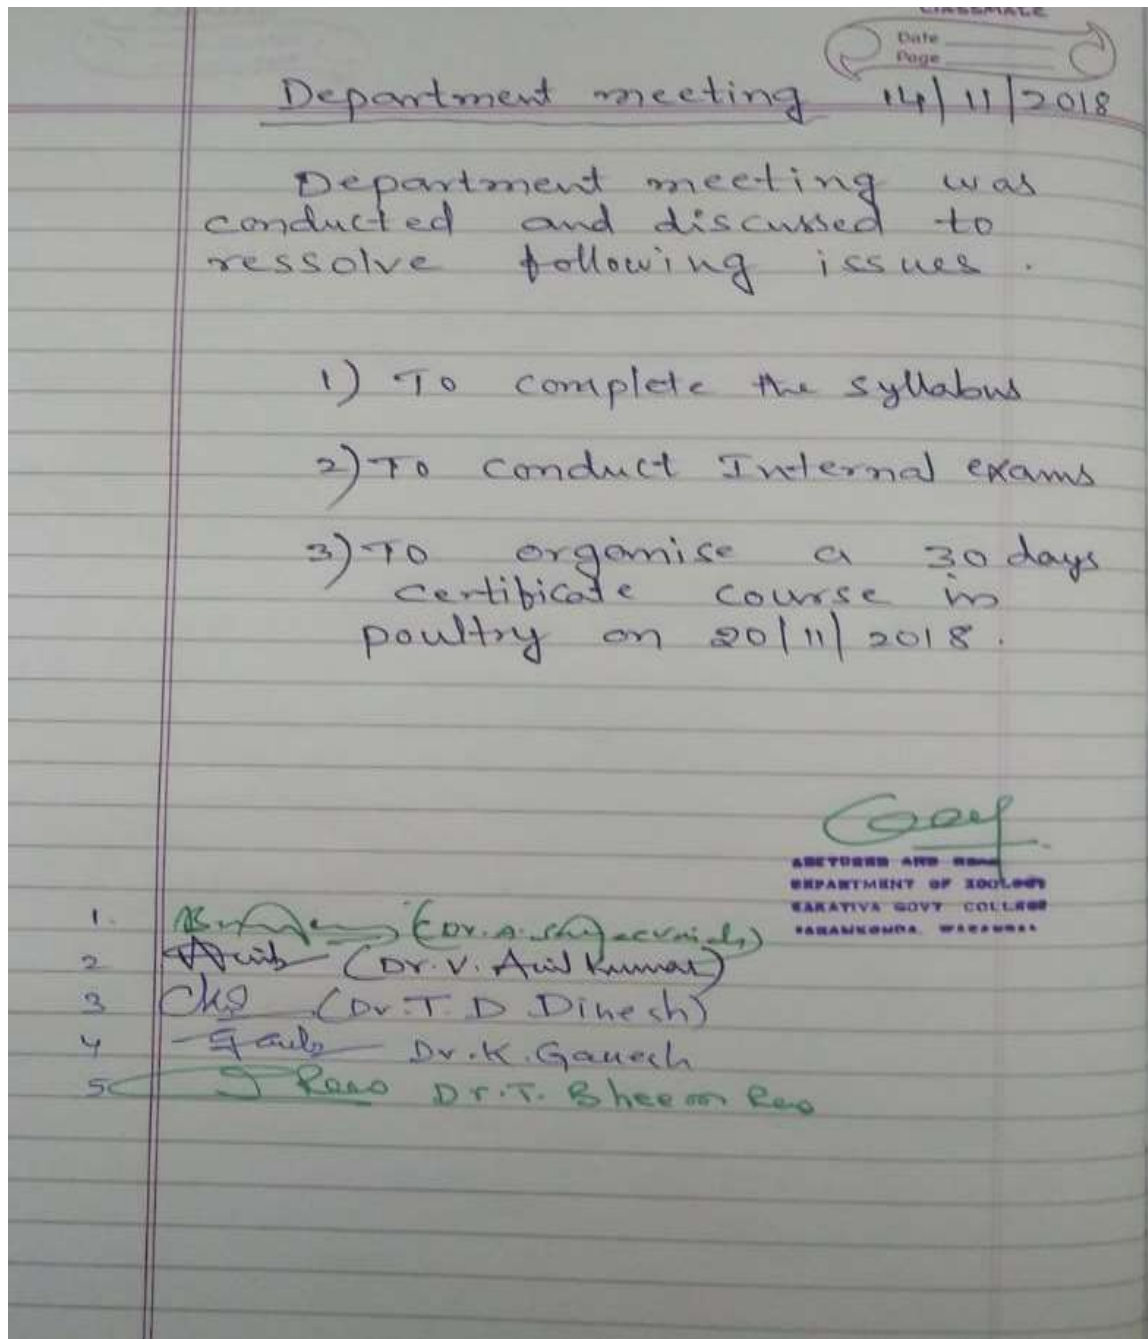 CLASSMATE
Date
Page
Department meeting 14/11/2018
Department meeting was
conducted and discussed to
ressolve following issues.
1) To complete the syllabus
2) To conduct Internal exams
3) To organise a 30 days
certificate course in
poultry on 20/11/2018.
AND
DEPARTMENT OF ZOOLOGY
KAKATIYA GOVT COLLEGE
1.
(Dr. A.
2 (Dr. V. Anil Kumar)
3 (Dr. T. D. Dinesh)
4 Dr. K. Ganesh
5 Rao Dr. T. Bheem Rao